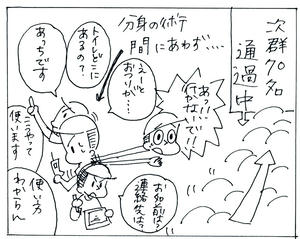 次群70名
通過中
分身のイボテ
間にあわず‥‥
あっ!!
行かないで!!
えーと
おつりが…
トイレどこに
あるの?
あっちです
こうやって
使います
使い方
わからん
お名前は?
連絡先は?